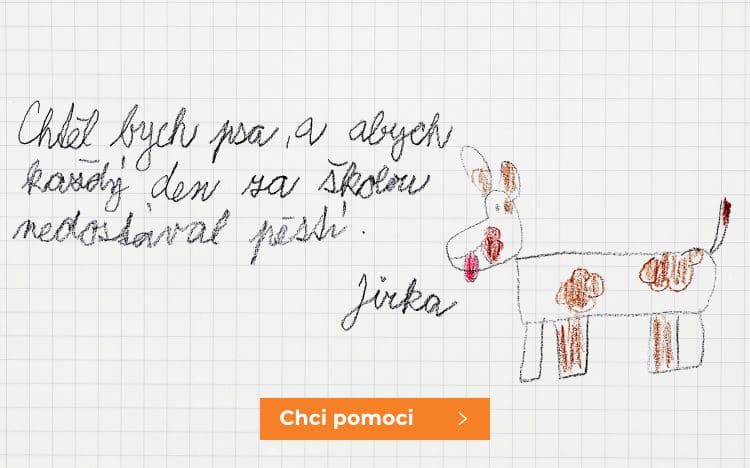 Chtěl bych psa, a abych
každý den za školou
nedostával pěstí.
Jirka
Chci pomoci